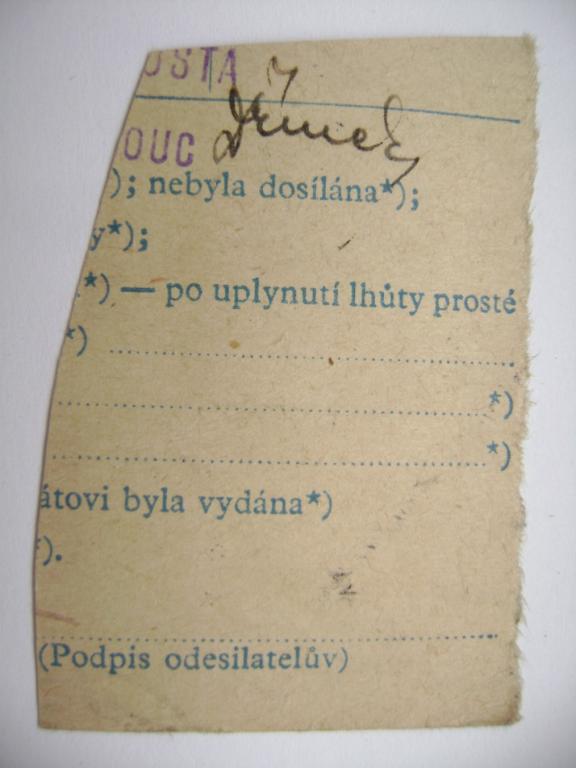 OSTA
OUC
); nebyla dosílána*);
y*);
*) — po uplynutí lhůty prosté
*)
*)
*)
átovi byla vydána*)
).
(Podpis odesilatelův)